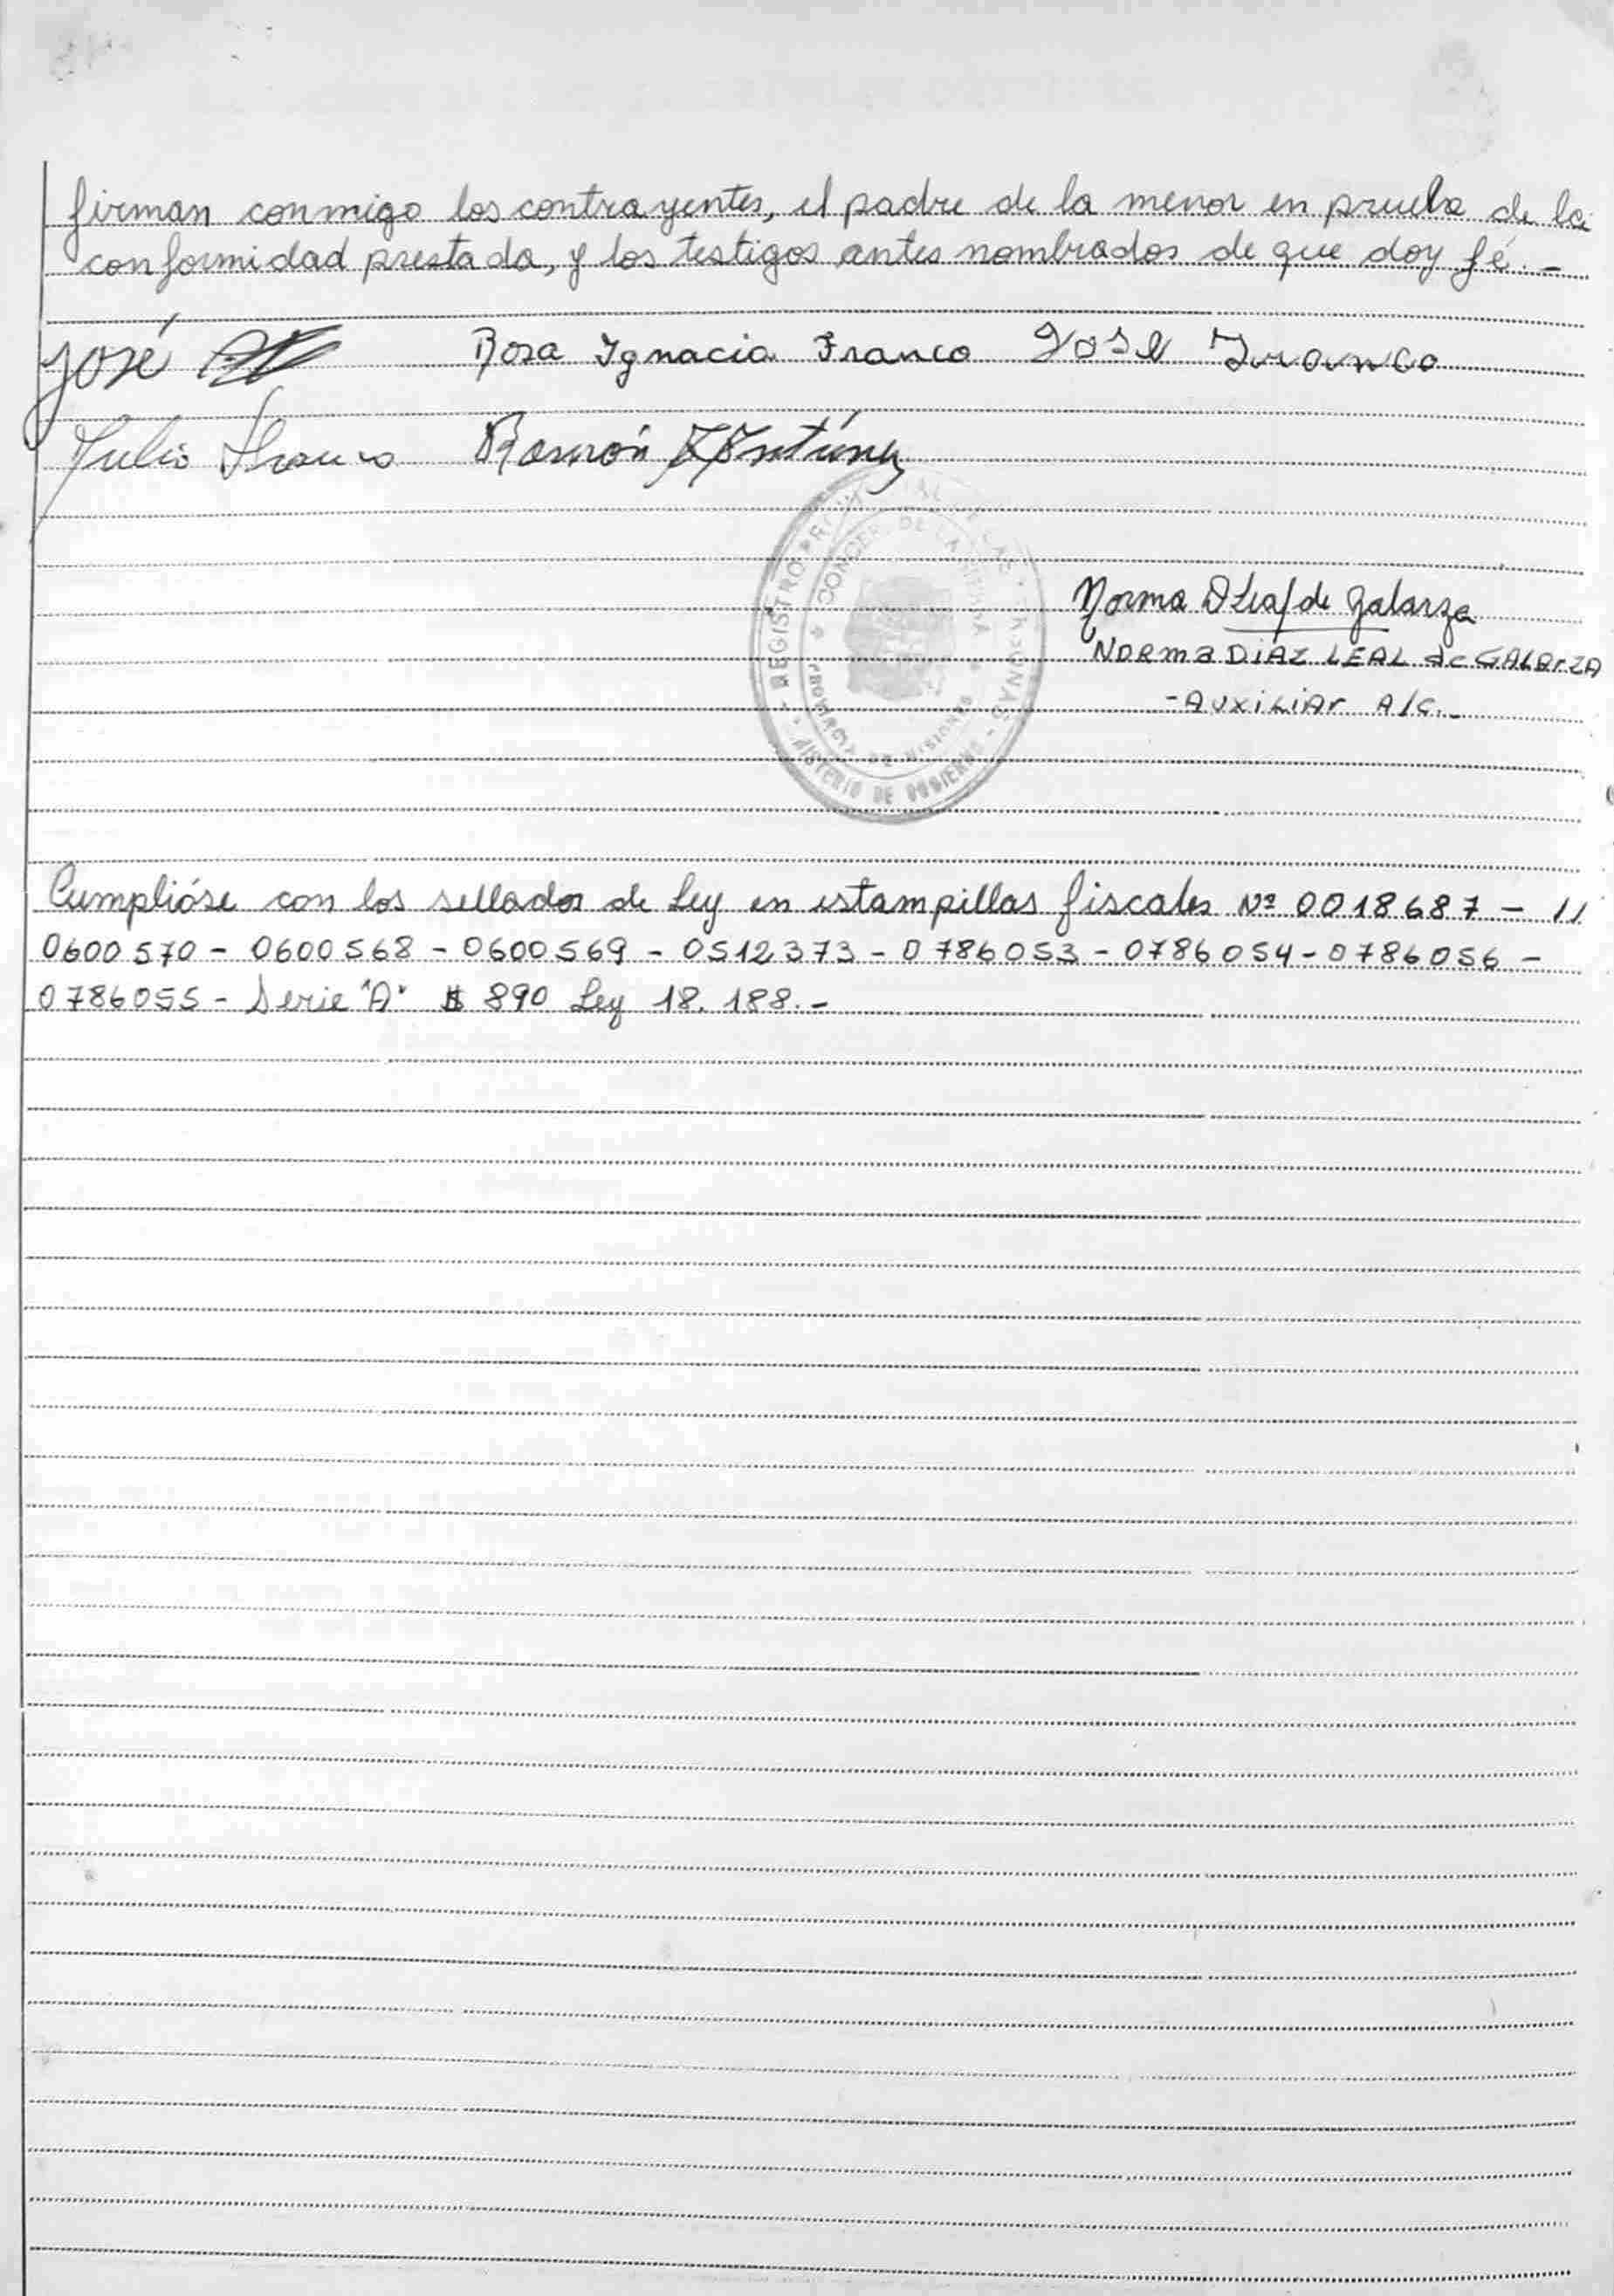 firman conmigo los contrayentes, el padre de la menor en prueba de la
conformidad prestada, y los testigos antes nombrados de que doy fé.-
José Rosa Ignacia Franco José Franco
Julio Franco Ramón Antúnez
REGISTRO PROVINCIAL DE LAS PERSONAS - MINISTERIO DE GOBIERNO -
PROVINCIA DE MISIONES
Norma D Leal de Galarza
NORMA DIAZ LEAL de GALARZA
-AUXILIAR A/C.-
Cumplióse con los sellados de Ley en estampillas fiscales Nº 0018687 - //
0600570 - 0600568 - 0600569 - 0512373 - 0786053 - 0786054 - 0786056 -
0786055 - Serie "A" $ 890 Ley 18.188.-